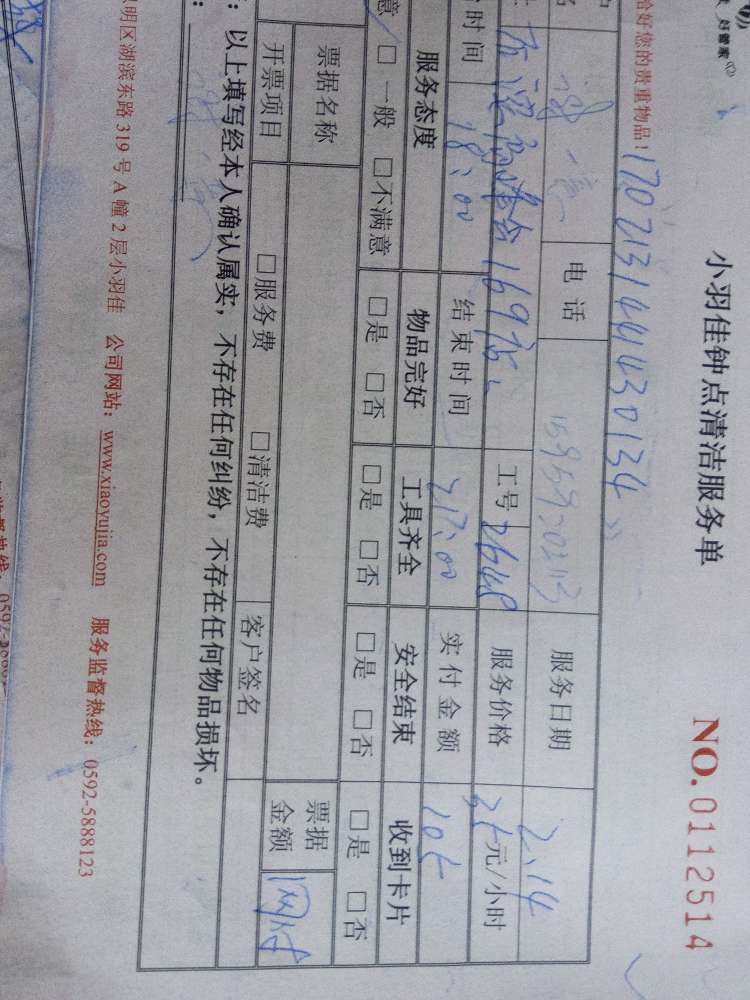 小羽佳钟点清洁服务单
NO.0112514
恰好您的贵重物品！
170213144430134
电话 服务日期 2.14
169 工号 2648 服务价格 35元/小时
时间 18:00 结束时间 21:00 实付金额 105
服务态度 物品完好 工具齐全 安全结束 收到卡片
意 □一般 □不满意 □是 □否 □是 □否 □是 □否 □是 □否
票据名称 票据金额 网付
开票项目 □服务费 □清洁费 客户签名
：以上填写经本人确认属实，不存在任何纠纷，不存在任何物品损坏。
明区湖滨东路319号A幢2层小羽佳 公司网站：www.xiaoyujia.com 服务监督热线：0592-5888123